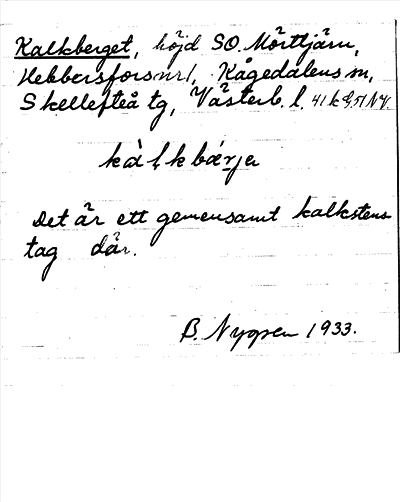 Kalkberget, höjd SO. Mörttjärn,
Hebbersfors nr 1, Kågedalens sn,
Skellefteå tg, Västerb. l. 41 k
kàlkbærja
Det är ett gemensamt kalkstens
tag där.
B. 1933.